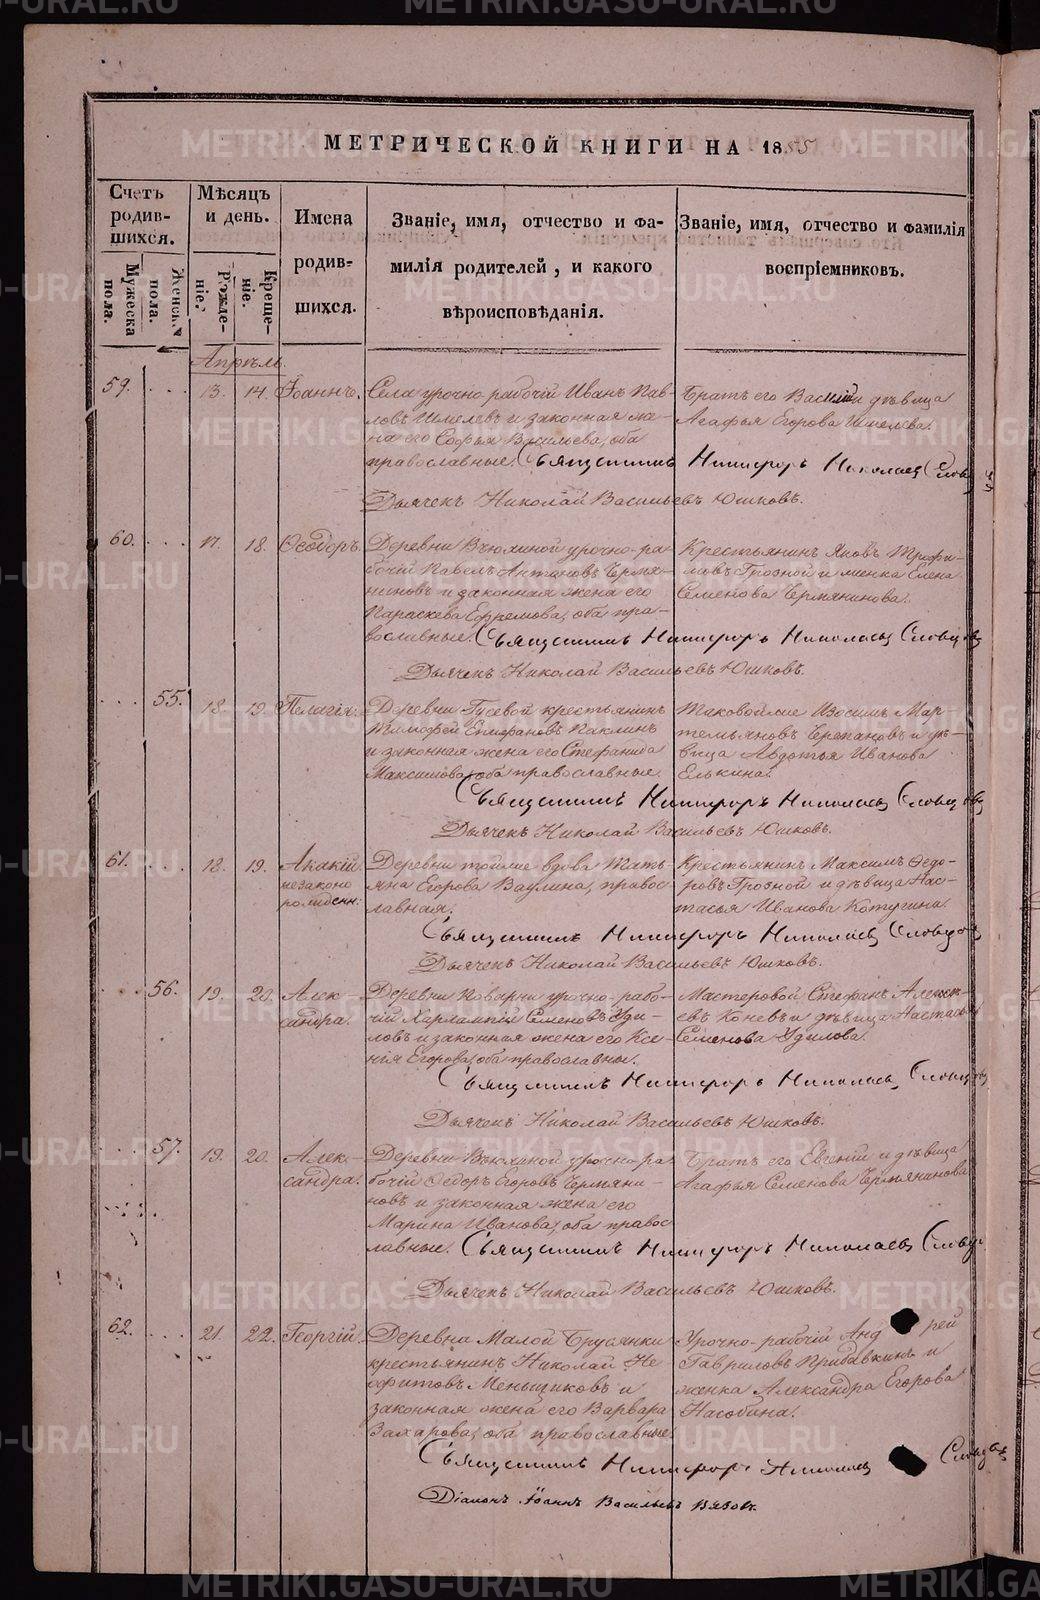 МЕТРИЧЕСКОЙ КНИГИ НА 1855
Счетъ родившихся.
Мужеска пола.
Женск. пола.
Мѣсяцъ и день.
Рожденіе.
Крещеніе.
Имена родившихся.
Званіе, имя, отчество и фамилія родителей, и какого вѣроисповѣданія.
Званіе, имя, отчество и фамилія воспріемниковъ.
Апрѣль.
59. 13. 14. Іоаннъ.
Села урочно рабочій Иванъ Павловъ Шмелевъ и законная жена его Софья Васильева, оба православные.
Братъ его Василій и дѣвица Агафья Егорова Шмелева.
Священникъ Никифоръ Николаевъ Словцовъ
Дьячекъ Николай Васильевъ Юшковъ.
60. 17. 18. Ѳеодоръ.
Деревни Вьюхиной урочно-рабочій Павелъ Антоновъ Чермяниновъ и законная жена его Параскева Ефремова, оба православные.
Крестьянинъ Яковъ Трефиловъ Грозной и женка Елена Семенова Чермянинова.
Священникъ Никифоръ Николаевъ Словцовъ
Дьячекъ Николай Васильевъ Юшковъ.
55. 18. 19. Пелагія.
Деревни Гусевой крестьянинъ Тимофей Епифановъ Паклинъ и законная жена его Стефанида Максимова, оба православные.
Таковой же Изосимъ Мартемьяновъ Черепановъ и дѣвица Авдотья Иванова Елькина.
Священникъ Никифоръ Николаевъ Словцовъ
Дьячекъ Николай Васильевъ Юшковъ.
61. 18. 19. Акакій незаконорожденн:
Деревни той же вдова Татьяна Егорова Ваулина, православная.
Крестьянинъ Максимъ Ѳедоровъ Грозной и дѣвица Настасья Иванова Котугина.
Священникъ Никифоръ Николаевъ Словцовъ
Дьячекъ Николай Васильевъ Юшковъ.
56. 19. 20. Александра.
Деревни Поварни урочно-рабочій Харлампій Семеновъ Удиловъ и законная жена его Ксенія Егорова, оба православные.
Мастеровой Стефанъ Алексѣевъ Коневъ и дѣвица Настасья Семенова Удилова.
Священникъ Никифоръ Николаевъ Словцовъ
Дьячекъ Николай Васильевъ Юшковъ.
57. 19. 20. Александра.
Деревни Вьюхиной урочно-рабочій Ѳедоръ Егоровъ Чермяниновъ и законная жена его Марина Иванова, оба православные.
Братъ его Евгеній и дѣвица Агафья Семенова Чермянинова
Священникъ Никифоръ Николаевъ Словцовъ
Дьячекъ Николай Васильевъ Юшковъ.
62. 21. 22. Георгій.
Деревни Малой Брусянки крестьянинъ Николай Неофитовъ Меньщиковъ и законная жена его Варвара Захарова, оба православные
Урочно-рабочій Андрей Гавриловъ Прибавкинъ и женка Александра Егорова Насобина.
Священникъ Никифоръ Николаевъ Словцовъ
Діаконъ Іоаннъ Васильевъ
METRIKI.GASO-URAL.RU